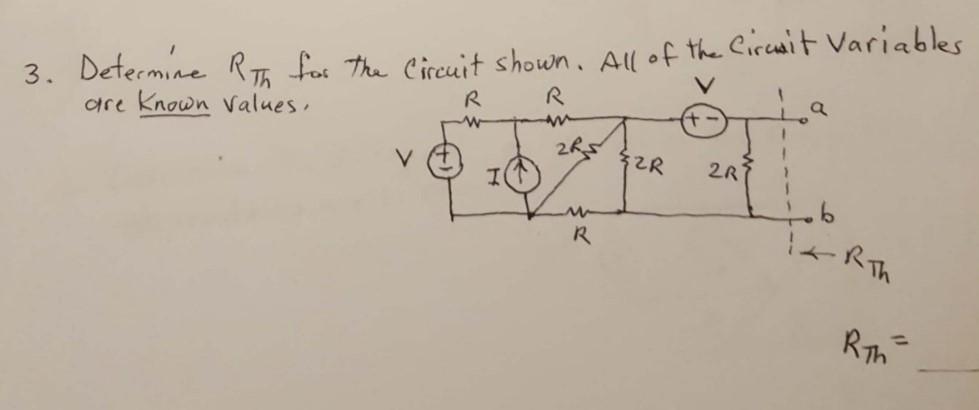 3. Determine R Th for the Circuit shown. All of the Circuit Variables
are Known Values.
V
R R
a
2R
V + - + -
I
2R
2R
b
R
R Th
R Th =